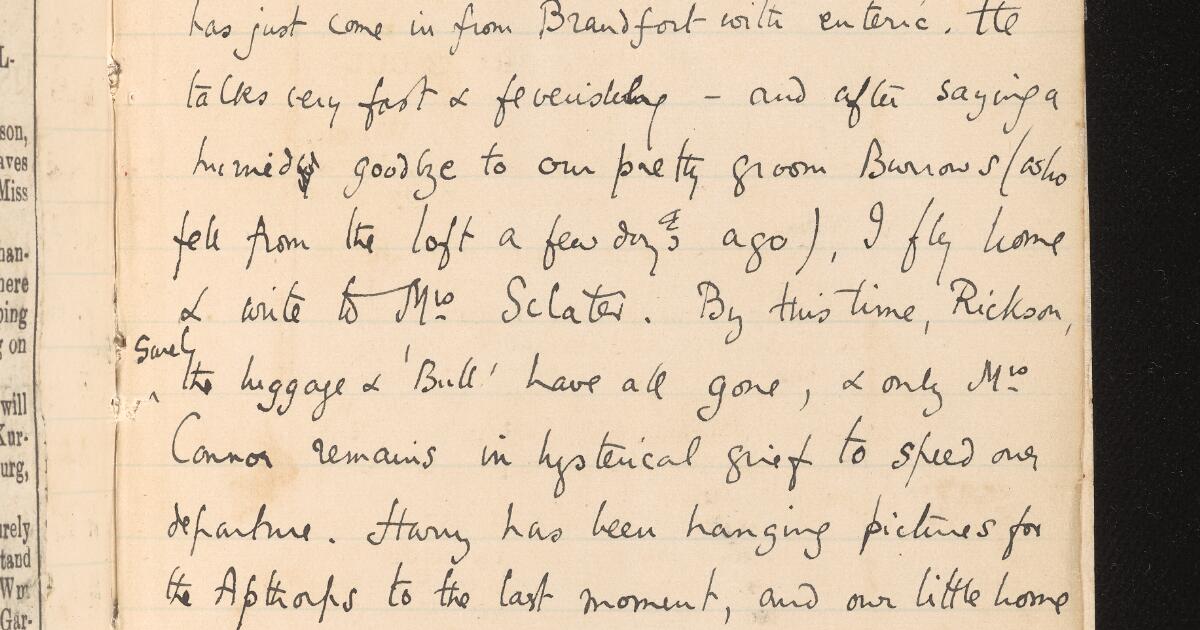 L-
son,
aves
Miss
han-
here
ping
g on
will
Kur-
urg,
urely
tand
Wm
Gar-
has just come in from Brandfort with enteric. He
talks very fast & feverishly – and after saying a
hurried goodbye to our pretty groom Burrows (who
fell from the loft a few days ago), I fly home
& write to Mrs Sclater. By this time, Rickson,
the luggage & 'Bull' have all gone, & only Mrs
Connor remains in hysterical grief to speed our
departure. Harry has been hanging pictures for
the Apthorps to the last moment, and our little home